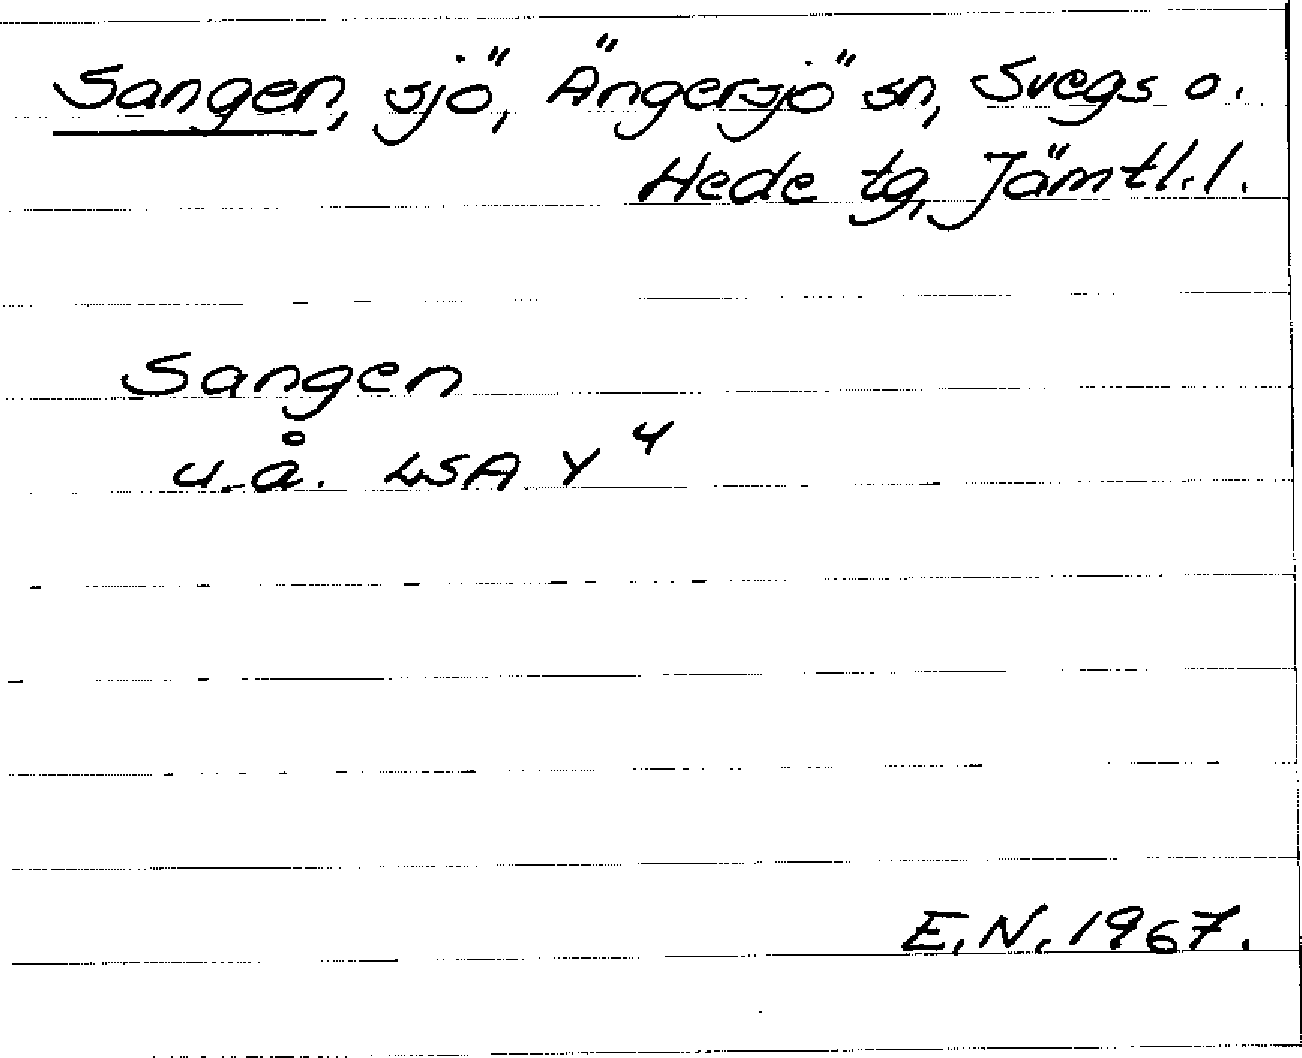 Sangen, sjö, Ängersjö sn, Svegs o.
Hede tg, Jämtl.l.
Sangen
u.å. LSA Y 4
E.N. 1967.